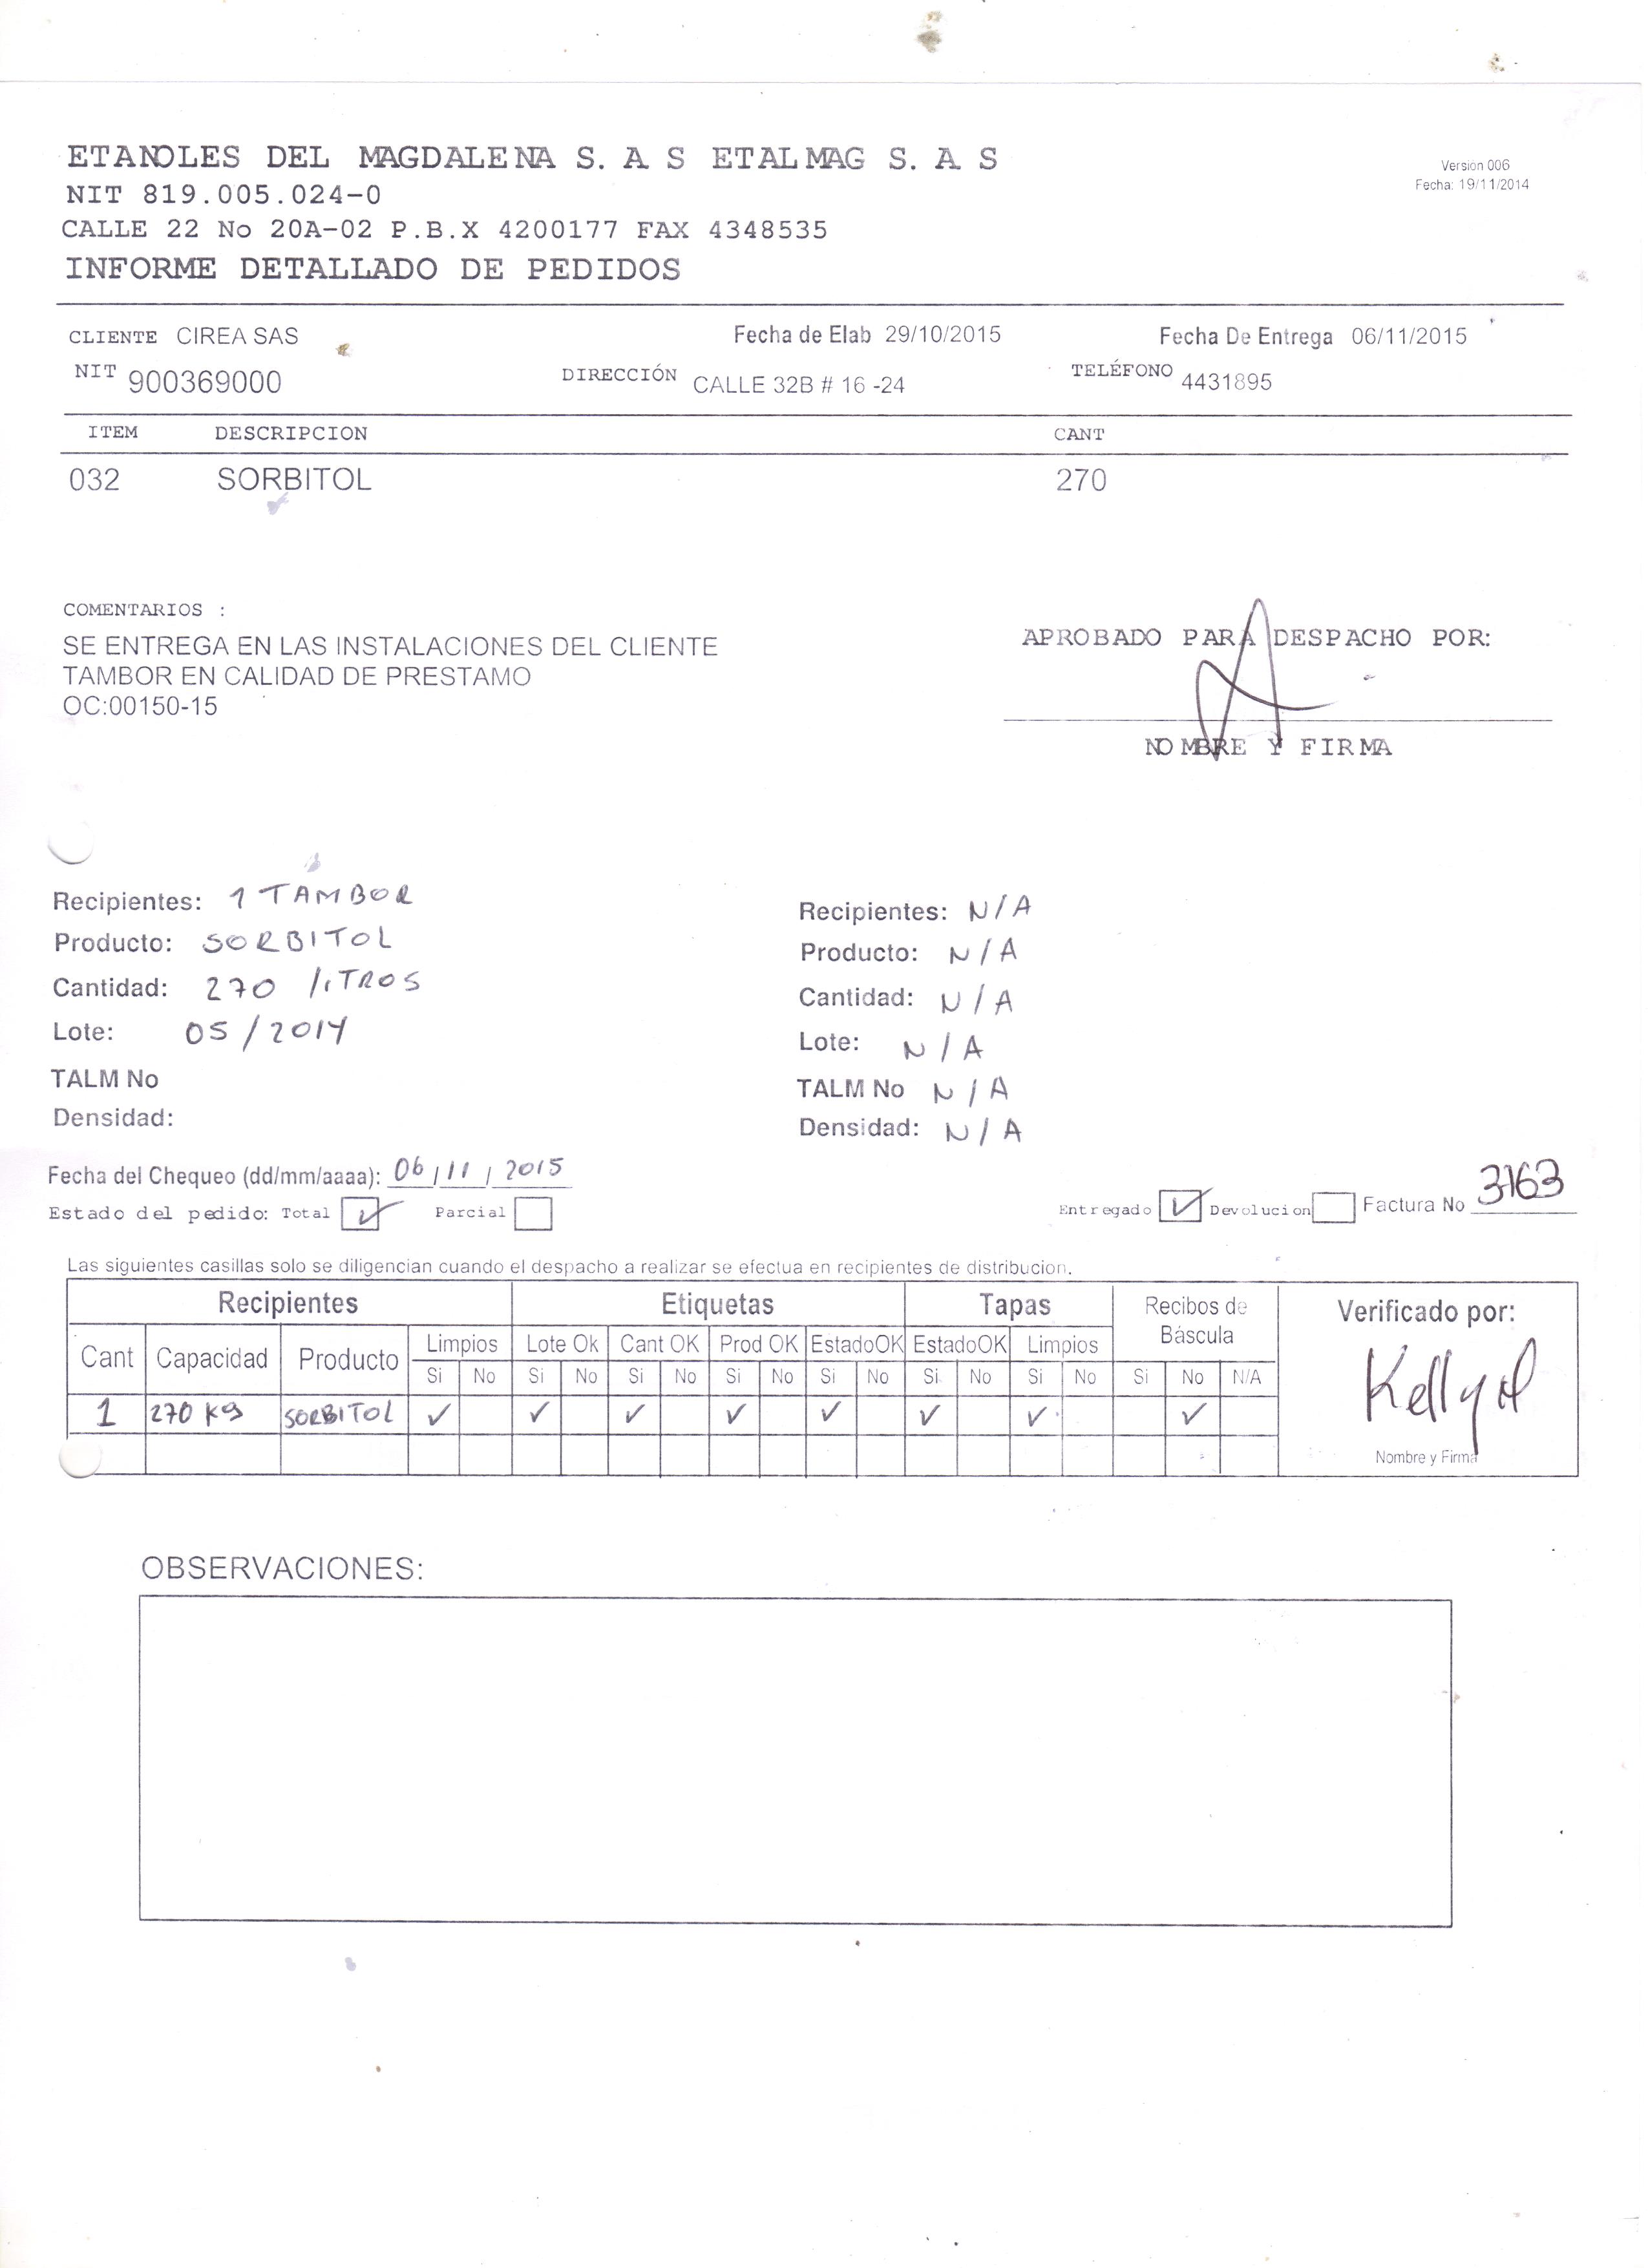 ETANOLES DEL MAGDALENA S. A S ETALMAG S. A S
Version 006
Fecha: 19/11/2014
NIT 819.005.024-0
CALLE 22 No 20A-02 P.B.X 4200177 FAX 4348535
INFORME DETALLADO DE PEDIDOS
CLIENTE CIREA SAS Fecha de Elab 29/10/2015 Fecha De Entrega 06/11/2015
NIT 900369000 DIRECCIÓN CALLE 32B # 16 -24 TELÉFONO 4431895
ITEM DESCRIPCION CANT
032 SORBITOL 270
COMENTARIOS :
SE ENTREGA EN LAS INSTALACIONES DEL CLIENTE
TAMBOR EN CALIDAD DE PRESTAMO
OC:00150-15
APROBADO PARA DESPACHO POR:
NOMBRE Y FIRMA
Recipientes: 1 TAMBOR
Producto: SORBITOL
Cantidad: 270 lITROS
Lote: 05/2014
TALM No
Densidad:
Recipientes: N/A
Producto: N/A
Cantidad: N/A
Lote: N/A
TALM No N/A
Densidad: N/A
Fecha del Chequeo (dd/mm/aaaa): 06/11/2015
Estado del pedido: Total ✓ Parcial
Entregado ✓ Devolucion Factura No 3163
Las siguientes casillas solo se diligencian cuando el despacho a realizar se efectua en recipientes de distribucion.
Recipientes Etiquetas Tapas Recibos de Báscula Verificado por:
Cant Capacidad Producto Limpios Lote Ok Cant OK Prod OK EstadoOK EstadoOK Limpios
Si No Si No Si No Si No Si No Si No Si No Si No N/A
1 270 KG SORBITOL ✓ ✓ ✓ ✓ ✓ ✓ ✓ ✓
Nombre y Firma
OBSERVACIONES: